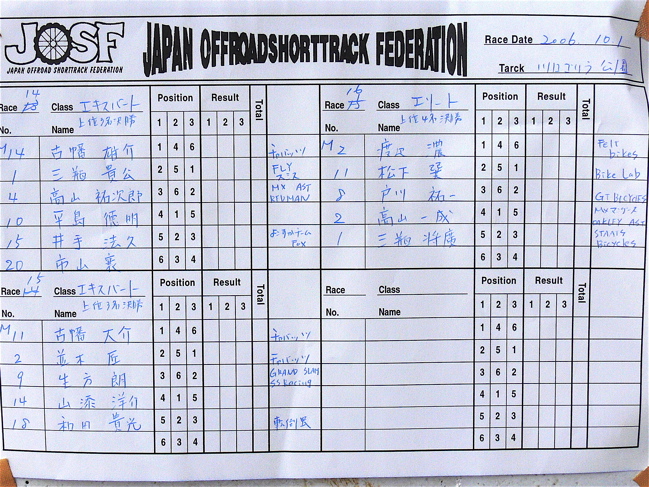 JOSF
JAPAN OFFROAD SHORTTRACK FEDERATION
JAPAN OFFROADSHORTTRACK FEDERATION
Race Date 2006. 10.1
Tarck
Race 14 Class エキスパート
上位3名決勝
Position Result Total
No. Name 1 2 3 1 2 3
M14 古幡 雄介 1 4 6 チバッツ
1 三瓶 貴公 2 5 1 FLY
4 高山 祐次郎 3 6 2 MX AST REDMAN
10 平島 優明 4 1 5
15 井手 法久 5 2 3
20 市山 6 3 4
Race 16 Class エリート
上位4名決勝
Position Result Total
No. Name 1 2 3 1 2 3
M2 渡辺 1 4 6 Felt bikes
11 松下 2 5 1 Bike Lab
8 戸川 祐一 3 6 2 GT BICYCLES
2 高山 一成 4 1 5 OAKLEY AST
1 三瓶 将廣 5 2 3 Bicycles
6 3 4
Race 15 Class エキスパート
上位3名決勝
Position Result Total
No. Name 1 2 3 1 2 3
M11 古幡 大介 1 4 6 チバッツ
2 並木 匠 2 5 1 チバッツ
9 生方 朗 3 6 2 GRAND SLAM SS Racing
14 山添 洋介 4 1 5
18 和田 貴光 5 2 3
6 3 4
Race Class
Position Result Total
No. Name 1 2 3 1 2 3
1 4 6
2 5 1
3 6 2
4 1 5
5 2 3
6 3 4